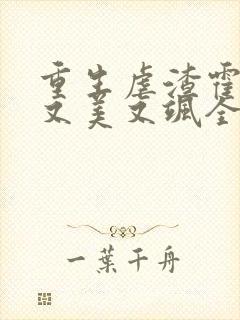 重生虐渣霍
又美又飒全
一葉千舟